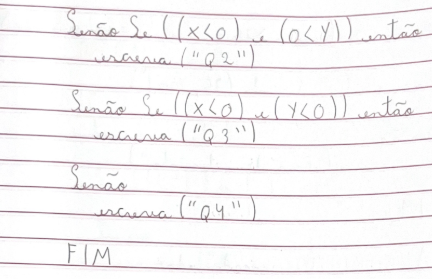 Senão Se ((X<0) e (0<Y)) então
escreva ("Q2")
Senão Se ((X<0) e (Y<0)) então
escreva ("Q3")
Senão
escreva ("Q4")
FIM